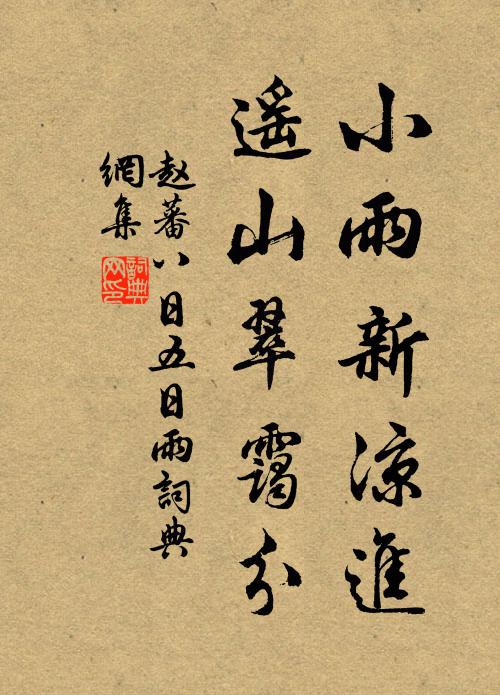 小雨新涼進
遥山翠靄分
赵蕃八日五日雨詞典
網集
詞典
网印